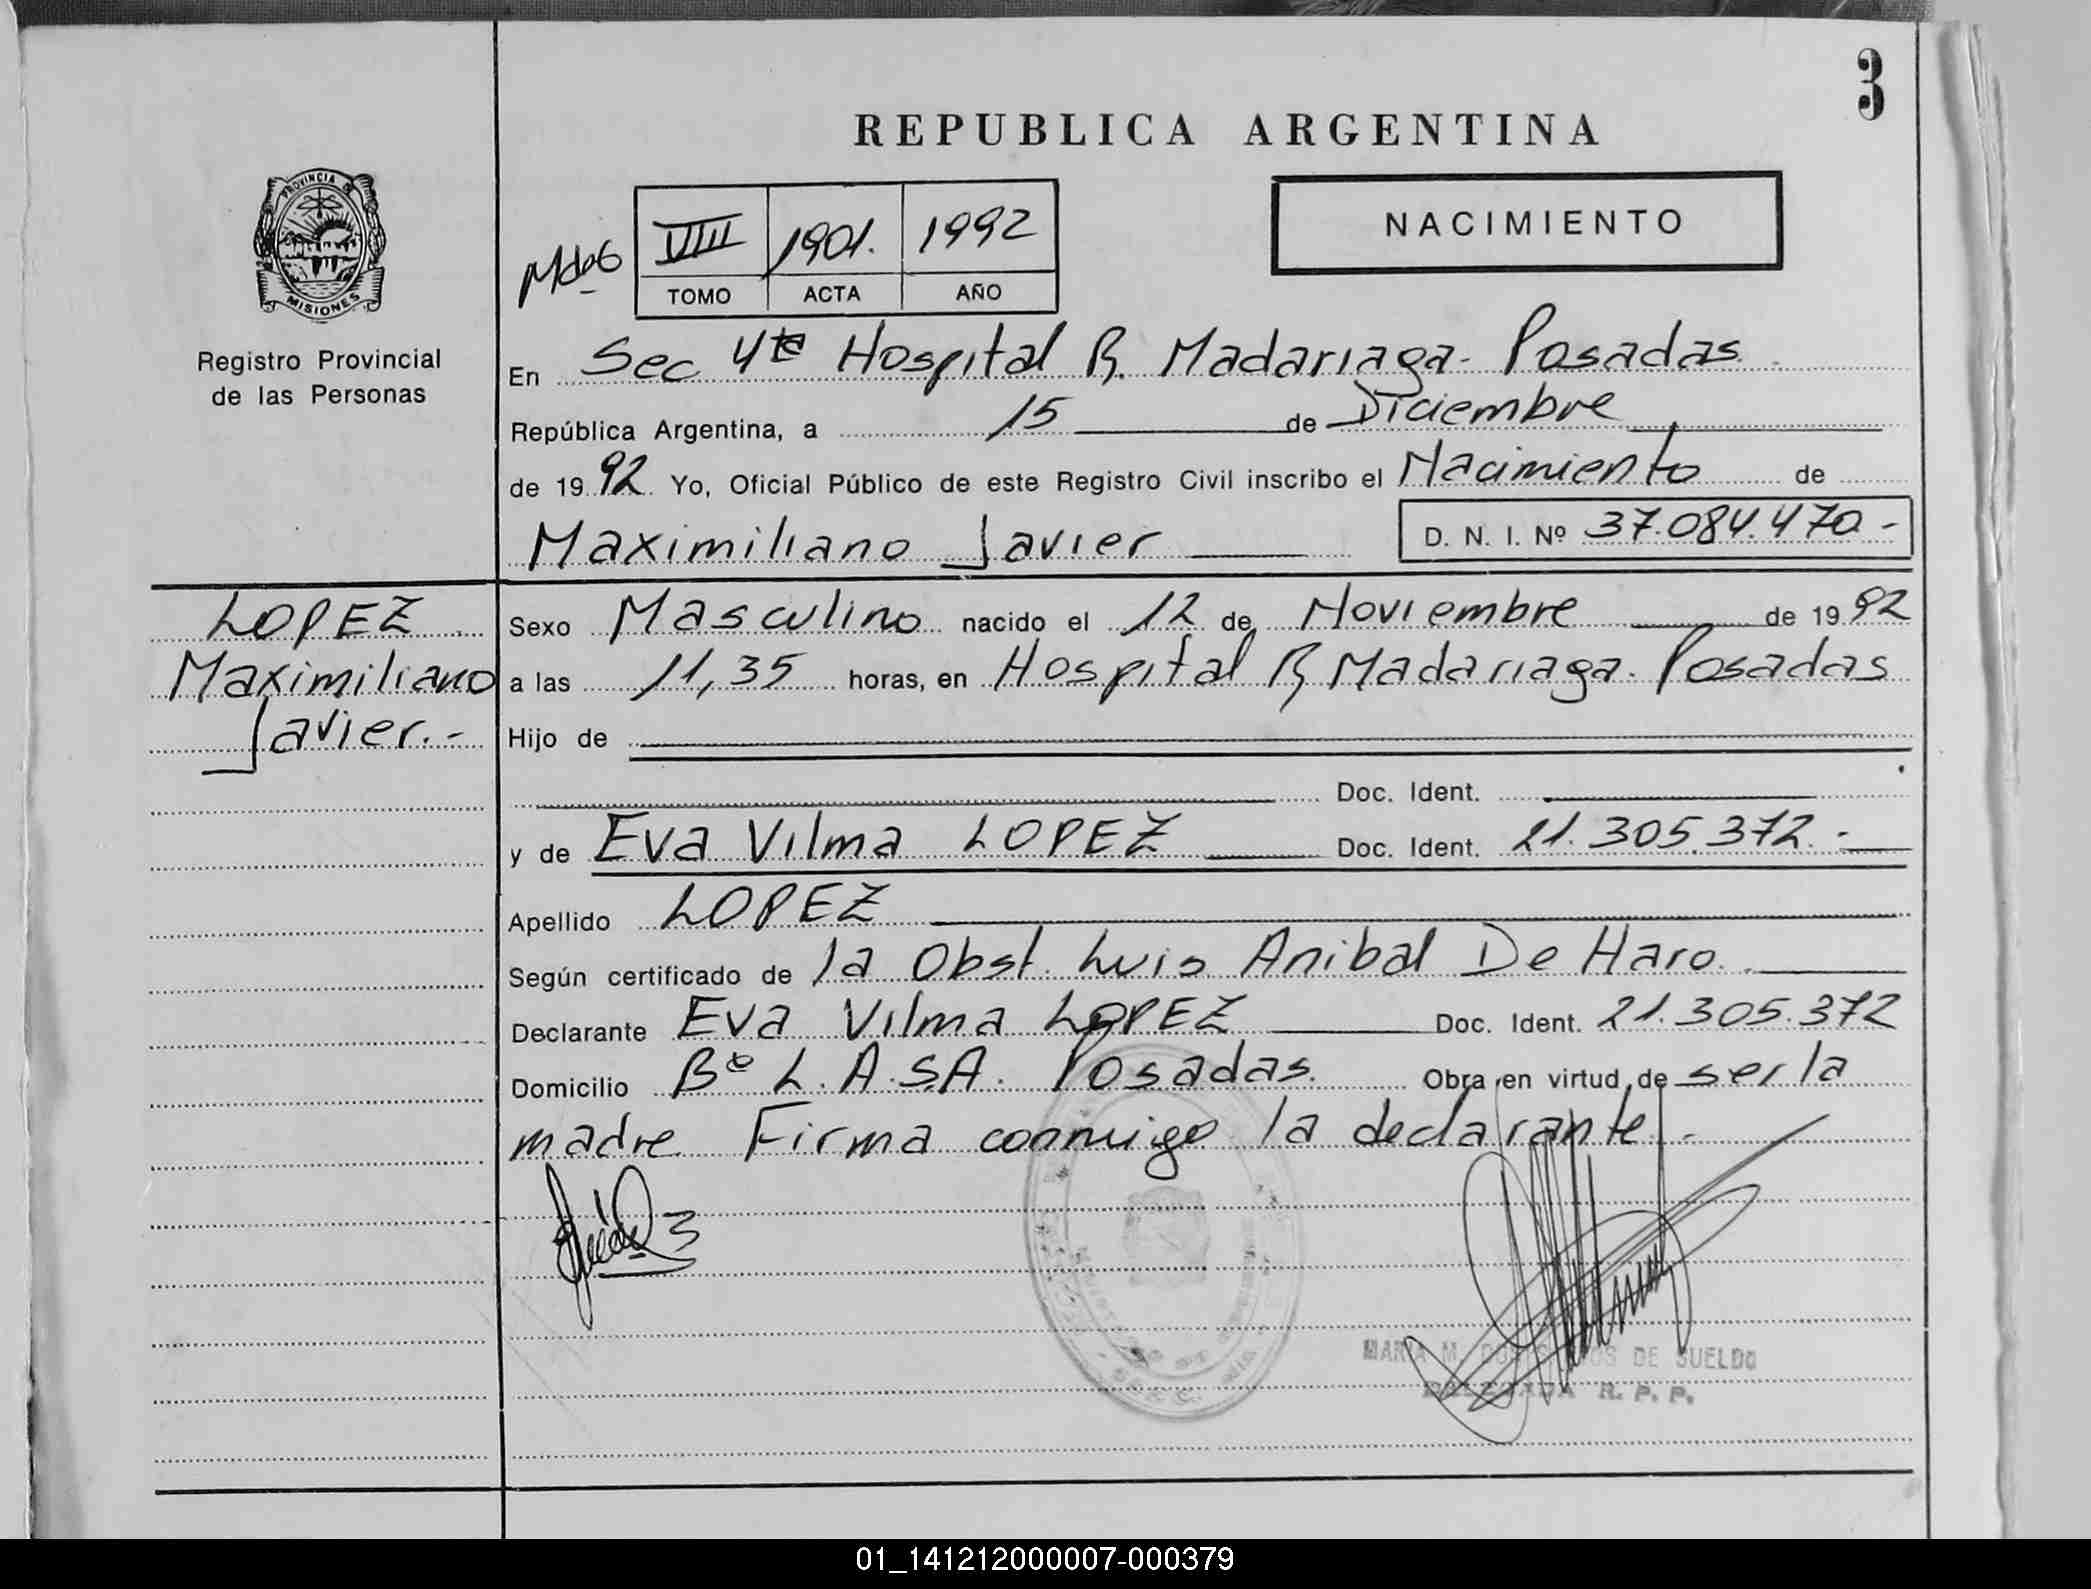 3
REPUBLICA ARGENTINA
NACIMIENTO
PROVINCIA DE
MISIONES
Registro Provincial
de las Personas
VIII 1901. 1992
TOMO ACTA AÑO
En Sec 4ta Hospital R. Madariaga - Posadas.
República Argentina, a 15 de Diciembre
de 1992 Yo, Oficial Público de este Registro Civil inscribo el Nacimiento de
Maximiliano Javier D. N. I. Nº 37.084.470.-
LOPEZ
Maximiliano
Javier.-
Sexo Masculino nacido el 12 de Noviembre de 1992
a las 11,35 horas, en Hospital R Madariaga. Posadas
Hijo de
Doc. Ident.
y de Eva Vilma LOPEZ Doc. Ident. 21.305.372.-
Apellido LOPEZ
Según certificado de la Obst. Luis Anibal De Haro.
Declarante Eva Vilma LOPEZ Doc. Ident. 21.305.372
Domicilio Bº L.A.S.A. Posadas. Obra en virtud de ser la
madre Firma conmigo la declarante.-
MARIA M. DE SUELDO
DELEGADA R. P. P.
01_141212000007-000379